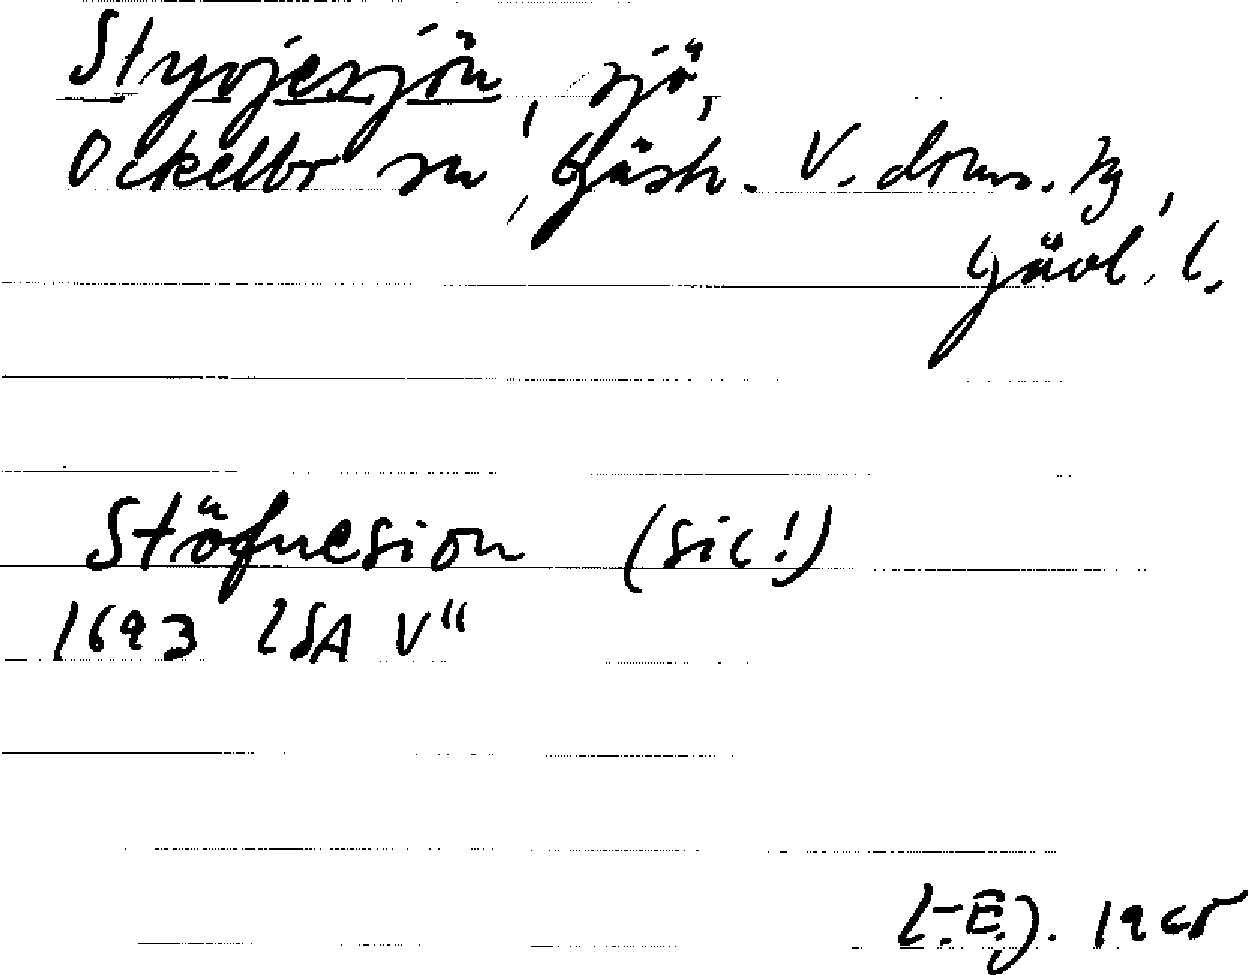 Styvjesjön, sjö,
Ockelbo sn, Gästr. V. doms. h,
Gävl. l.
Stöfuesion (sic!)
1693 LSA V"
L-E.J. 1965